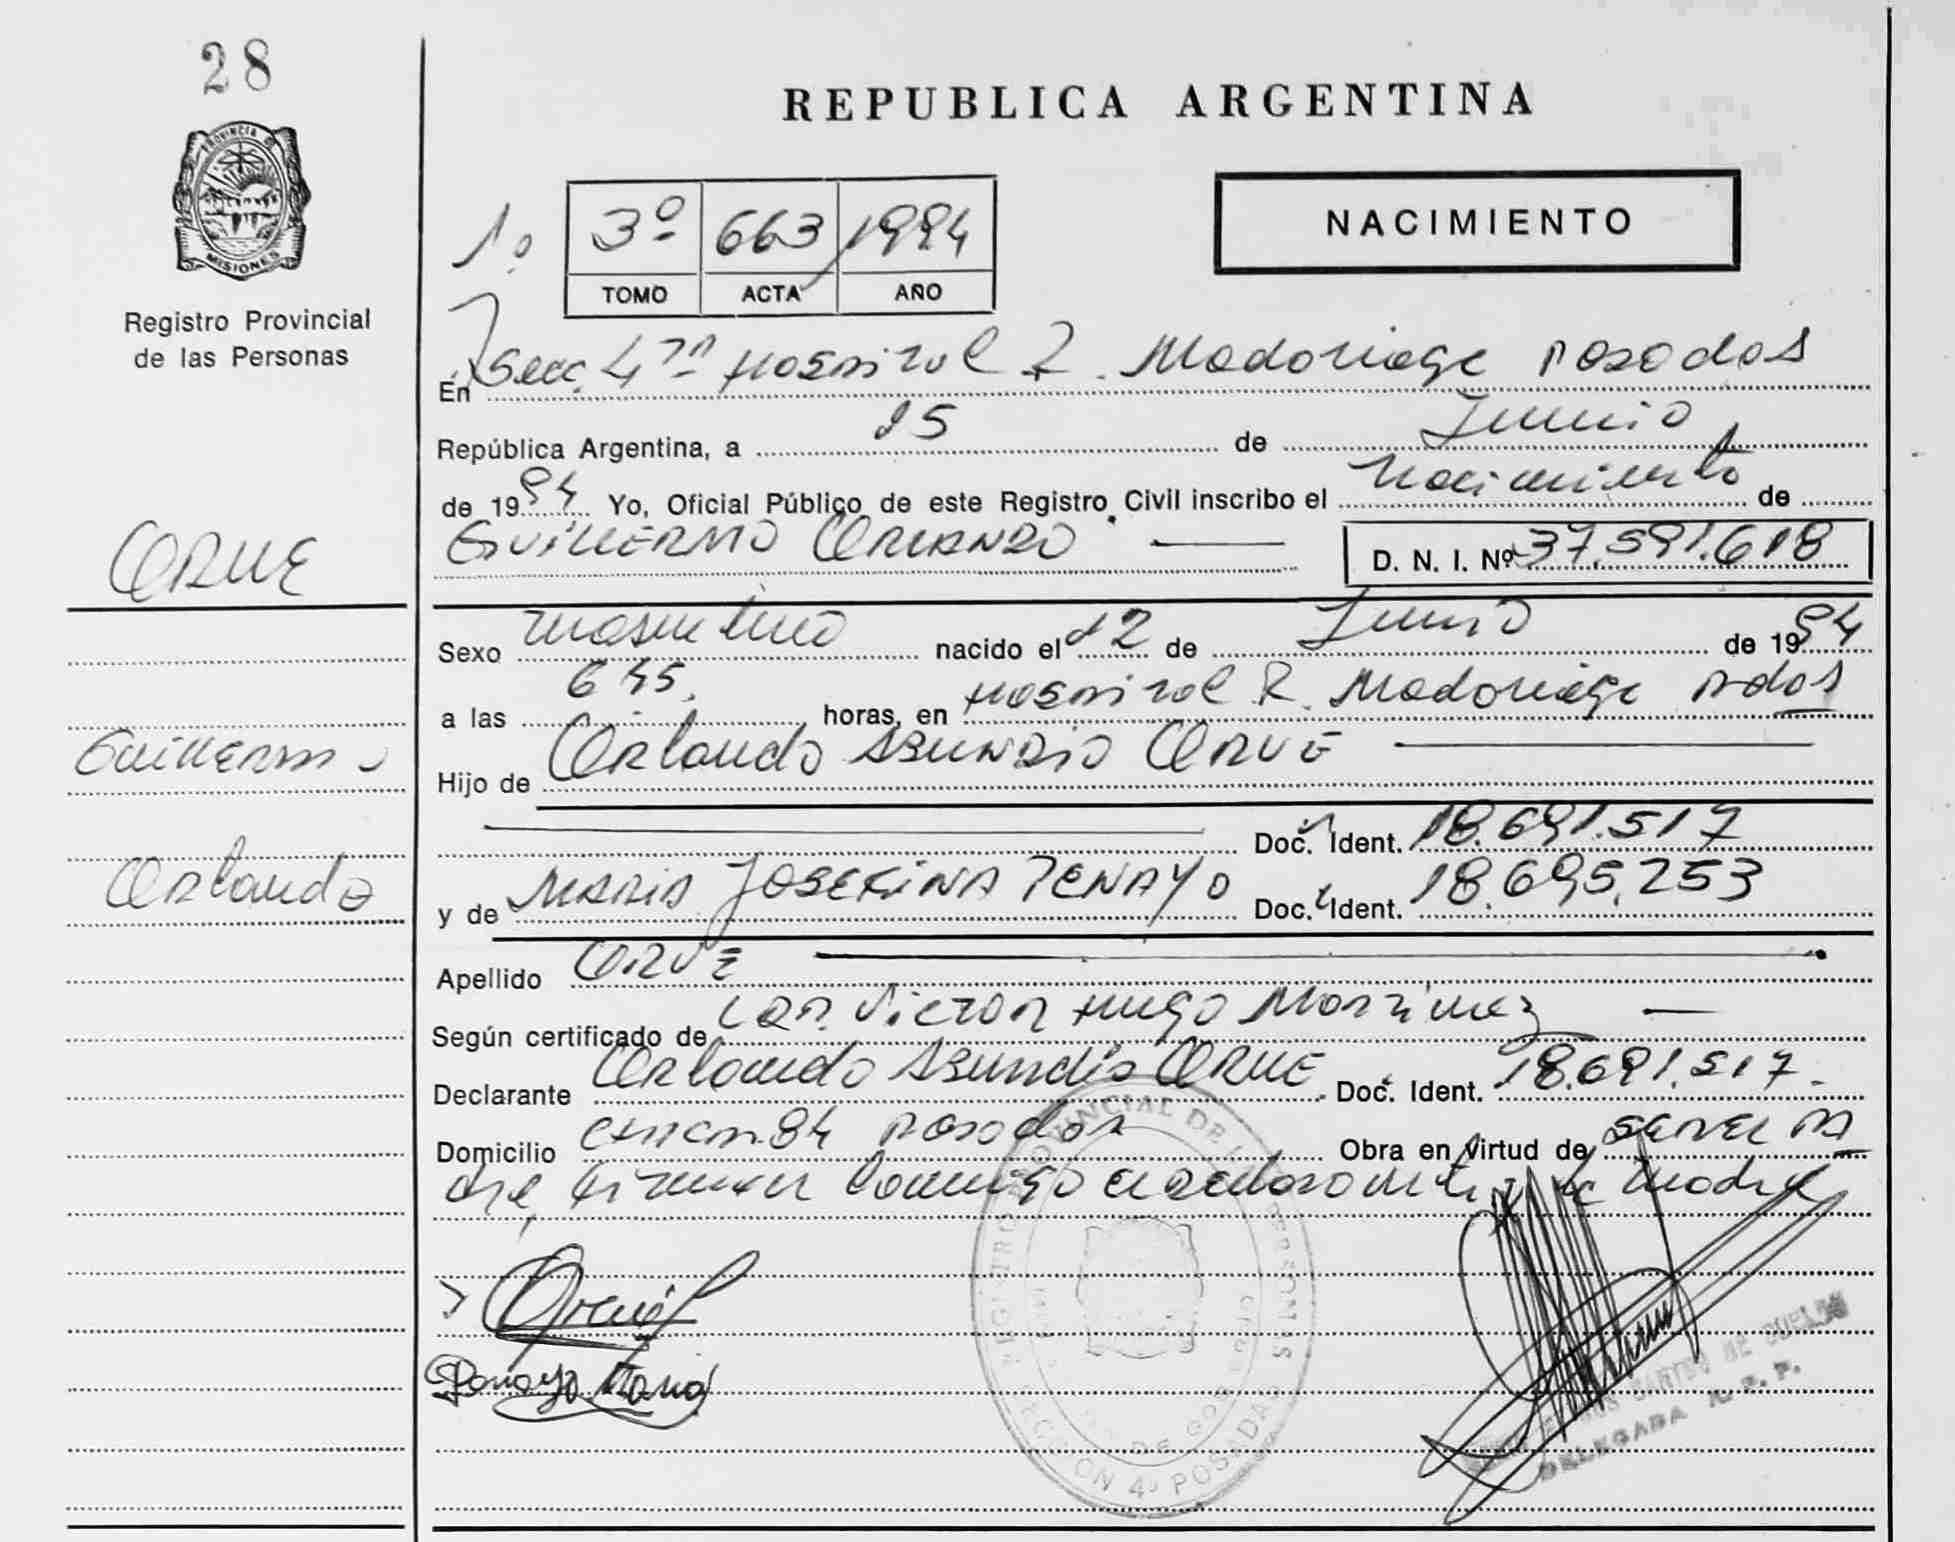 28
PROVINCIA DE
MISIONES
Registro Provincial
de las Personas
ORUE
Guillermo
Orlando
REPUBLICA ARGENTINA
NACIMIENTO
1º
3º 663 1994
TOMO ACTA AÑO
En Secc. 4ta Hospital R. Madariaga Posadas
República Argentina, a 15 de Junio
de 1994 Yo, Oficial Público de este Registro Civil inscribo el Nacimiento de
GUILLERMO ORLANDO — D. N. I. Nº 37.591.618
Sexo masculino nacido el 12 de Junio de 1994
a las 6 45. horas, en Hospital R. Madariaga Pdas
Hijo de Orlando ASUNDIO ORUE —
Doc. Ident. 18.691.517
y de MARIA JOSEFINA TENAYO Doc. Ident. 18.695.253
Apellido ORUE —
Según certificado de Victor Hugo Martinez —
Declarante Orlando Asundio ORUE Doc. Ident. 18.691.517.
Domicilio 84 Posadas Obra en Virtud de SER EL PA
dre, firman conmigo el declarante y la madre
Orué
Tenayo Maria
REGISTRO PROVINCIAL DE LAS PERSONAS
SECCION 4ª POSADAS
DELEGADA R. P. P.